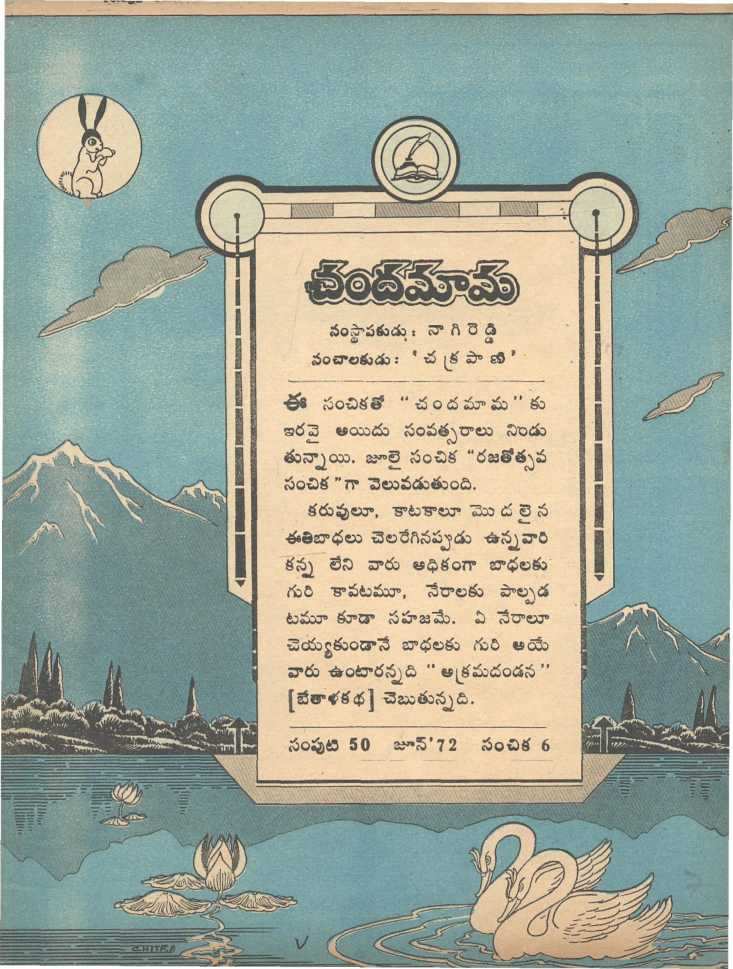 చందమామ
సంస్థాపకుడు : నాగిరెడ్డి
సంచాలకుడు : ' చక్రపాణి '
ఈ సంచికతో " చందమామ " కు
ఇరవై అయిదు సంవత్సరాలు నిండు
తున్నాయి. జూలై సంచిక "రజతోత్సవ
సంచిక" గా వెలువడుతుంది.
కరువులూ, కాటకాలూ మొదలైన
ఈతిబాధలు చెలరేగినప్పుడు ఉన్నవారి
కన్న లేని వారు అధికంగా బాధలకు
గురి కావటమూ, నేరాలకు పాల్పడ
టమూ కూడా సహజమే. ఏ నేరాలూ
చెయ్యకుండానే బాధలకు గురి అయే
వారు ఉంటారన్నది " అక్రమదండన "
[బేతాళకథ] చెబుతున్నది.
సంపుటి 50 జూన్'72 సంచిక 6
CHITRA